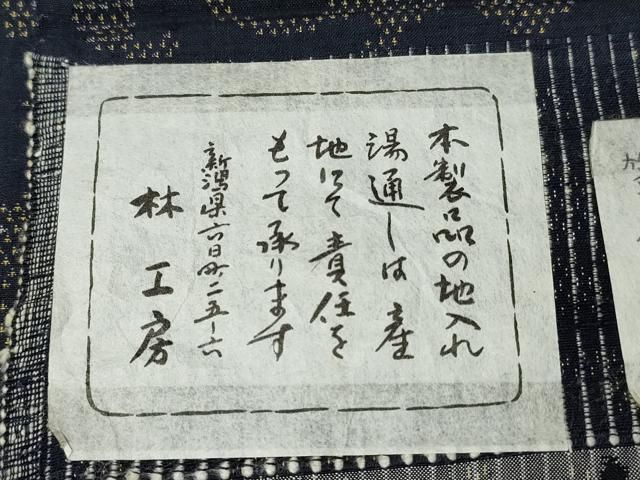 本製品の地入れ
湯通しは産
地にて責任を
もって承ります
新潟県六日町二五一六
林工房